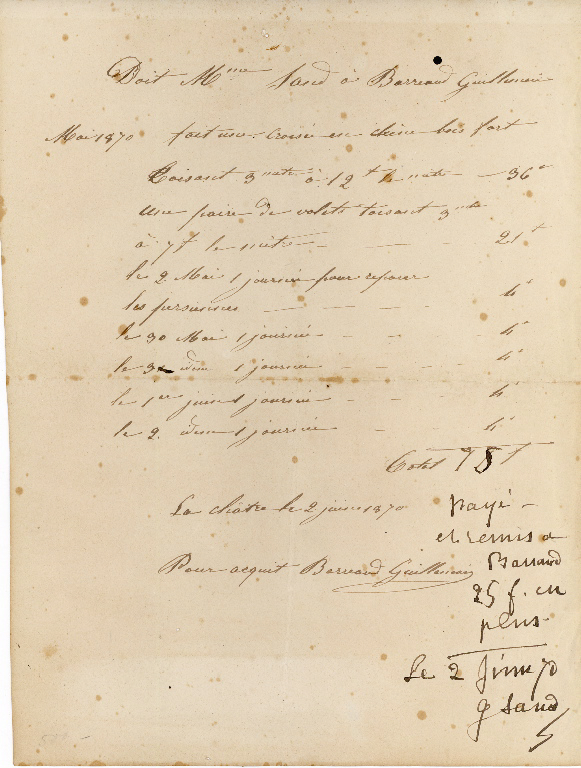 Doit Mme Sand à Barreaud Guillemin
Mai 1870 fait une croisée en chêne bois fort
toisant 3 mètre à 12 f le mètre — 36 f
une paire de volets toisant 3 mètre
à 7 f le mètre — 21 f
le 2 Mai 1 journée pour réparer
les persiennes — 4 f
le 30 Mai 1 journée — 4 f
le 31 idem 1 journée — 4 f
le 1er juin 1 journée — 4 f
le 2 idem 1 journée — 4 f
Total
La châtre le 2 juin 1870
Pour acquit Barreaud Guillemin
payé -
et remis a
Barraud
25 f. en
plus -
Le 2 Juin 70
g Sand